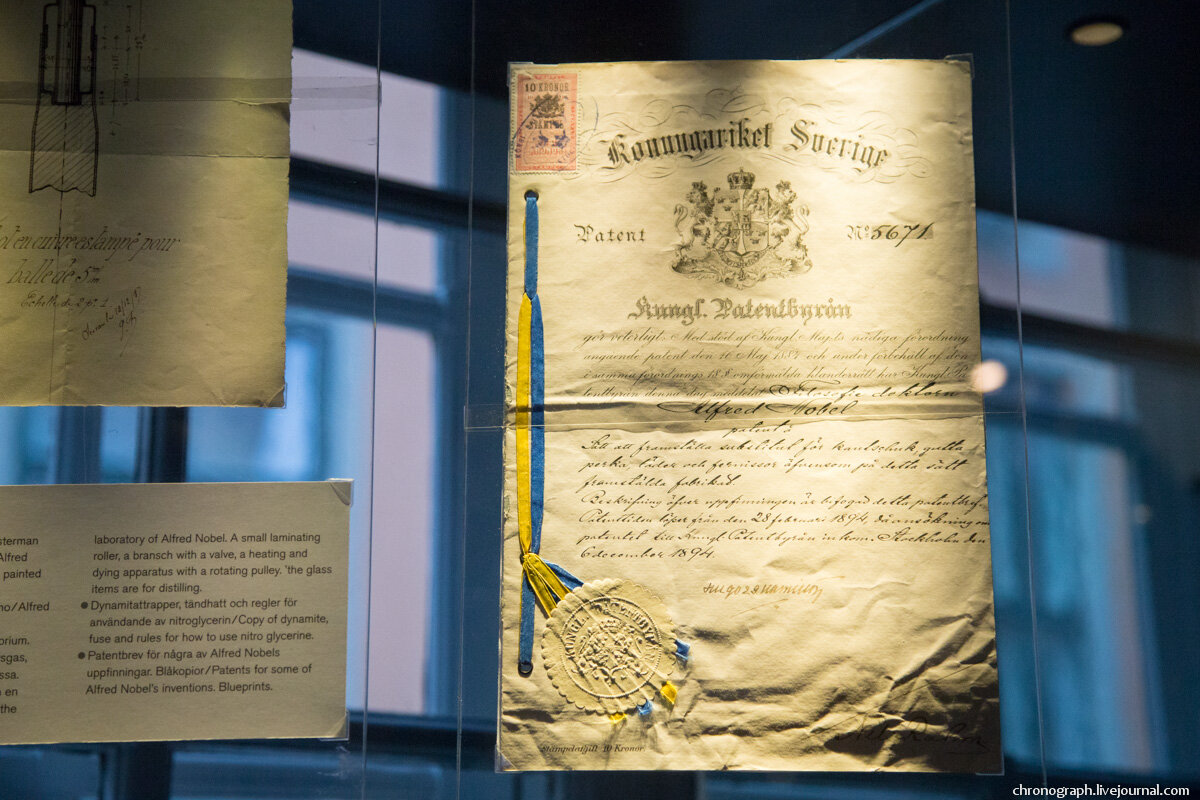 en cuivre estampé pour
balle de 5 m/m
Echelle de 2 p. 1.
sterman
Alfred
painted
no/Alfred
orium.
rsgas,
ssa.
n en
the
laboratory of Alfred Nobel. A small laminating
roller, a bransch with a valve, a heating and
dying apparatus with a rotating pulley. 'the glass
items are for distilling.
● Dynamitattrapper, tändhatt och regler för
användande av nitroglycerin/Copy of dynamite,
fuse and rules for how to use nitro glycerine.
● Patentbrev för några av Alfred Nobels
uppfinningar. Blåkopior/Patents for some of
Alfred Nobel's inventions. Blueprints.
10 KRONOR
Konungariket Sverige
Patent
No 5671.
Kungl. Patentbyrån
gör veterligt: Med stöd af Kungl. Maj:ts nådiga förordning
angående patent den 16 Maj 1884 och under förbehåll af den
i samma förordnings 18 § omförmälda klanderrätt har Kungl. Pa-
tentbyrån denna dag meddelat Filosofie doktorn
Alfred Nobel
patent å
Sätt att framställa substitut för kautschuk, gutta
perka, läder och fernissor äfvensom på detta sätt
framstälda fabrikat.
Beskrifning öfver uppfinningen är bifogad detta patentbref.
Patenttiden löper från den 28 februari 1894, då ansökning om
patentet till Kungl. Patentbyrån inkom. Stockholm den
6 december 1894.
Hugo Hamilton
Stämpelafgift 10 Kronor.
chronograph.livejournal.com